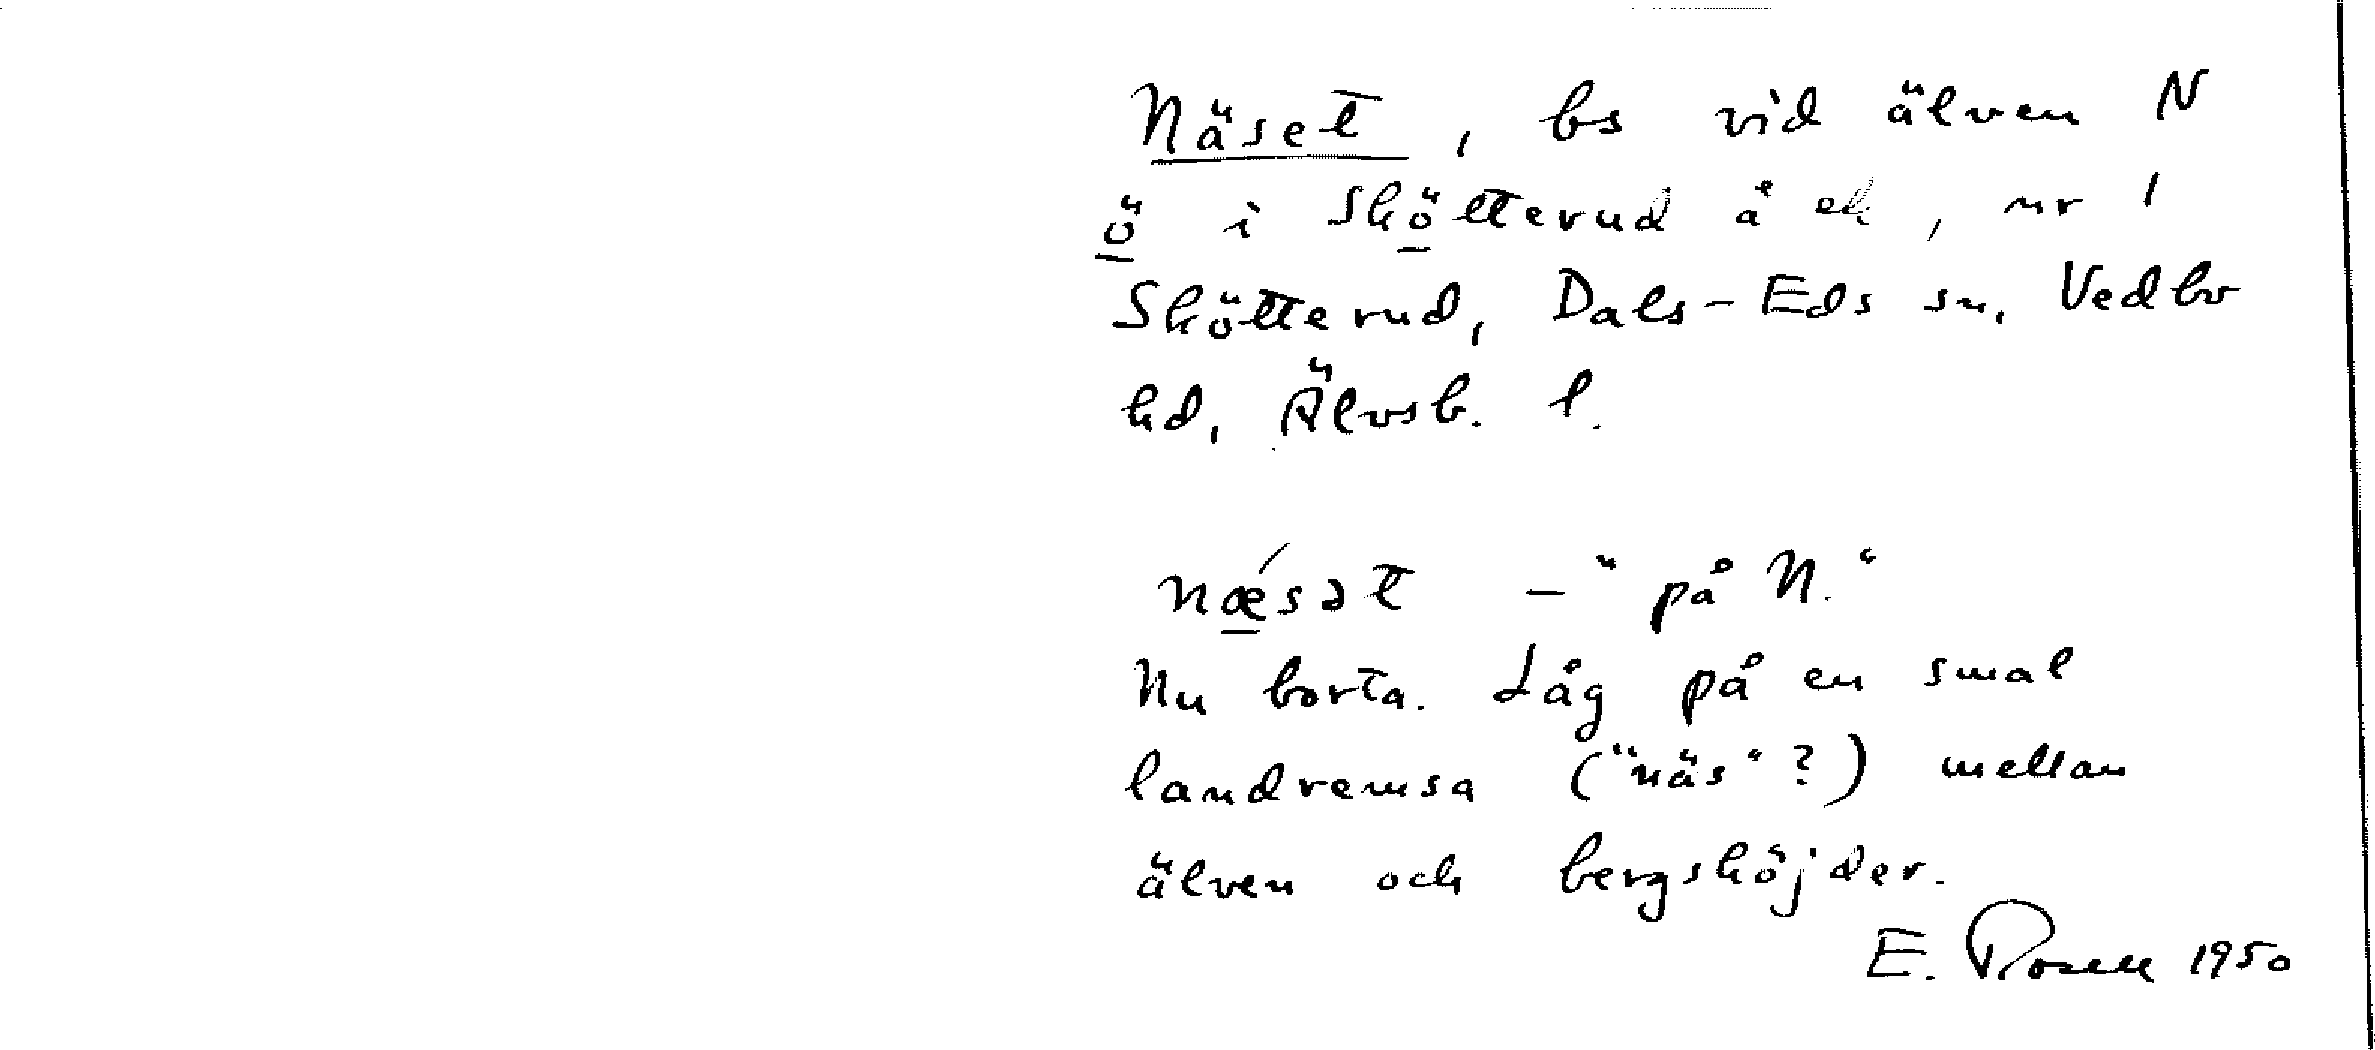 Näset, bs vid älven N
ö i Skötterud å ek, nr 1
Skötterud, Dals-Eds sn, Vedbo
hd, Älvsb. l.
nǽsət - "på N."
Nu borta. Låg på en smal
landremsa ("näs"?) mellan
älven och bergshöjder.
E. Rosell 1950